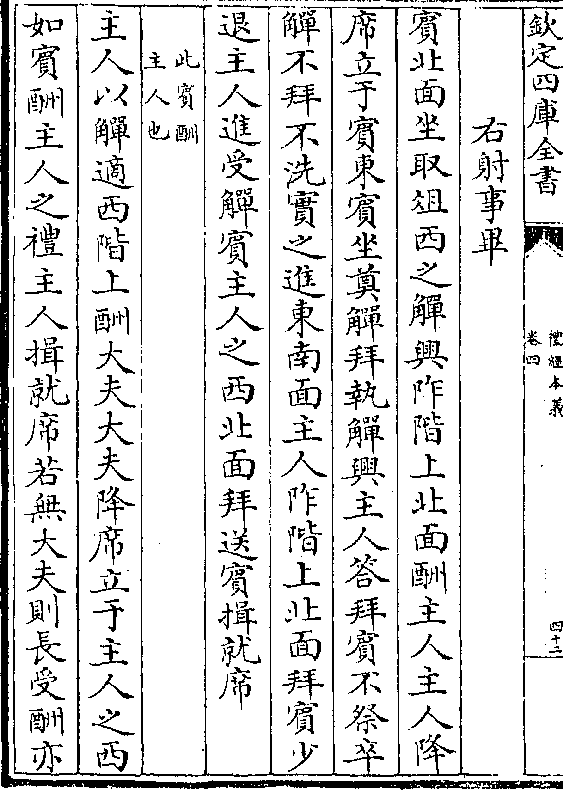 欽定四庫全書
禮經本義
卷四
四十三
右射事畢
賓北面坐取俎西之觶興阼階上北面酬主人主人降
席立于賓東賓坐奠觶拜執觶興主人答拜賓不祭卒
觶不拜不洗實之進東南面主人阼階上北面拜賓少
退主人進受觶賓主人之西北面拜送賓揖就席
此賓酬
主人也
主人以觶適西階上酬大夫大夫降席立于主人之西
如賓酬主人之禮主人揖就席若無大夫則長受酬亦